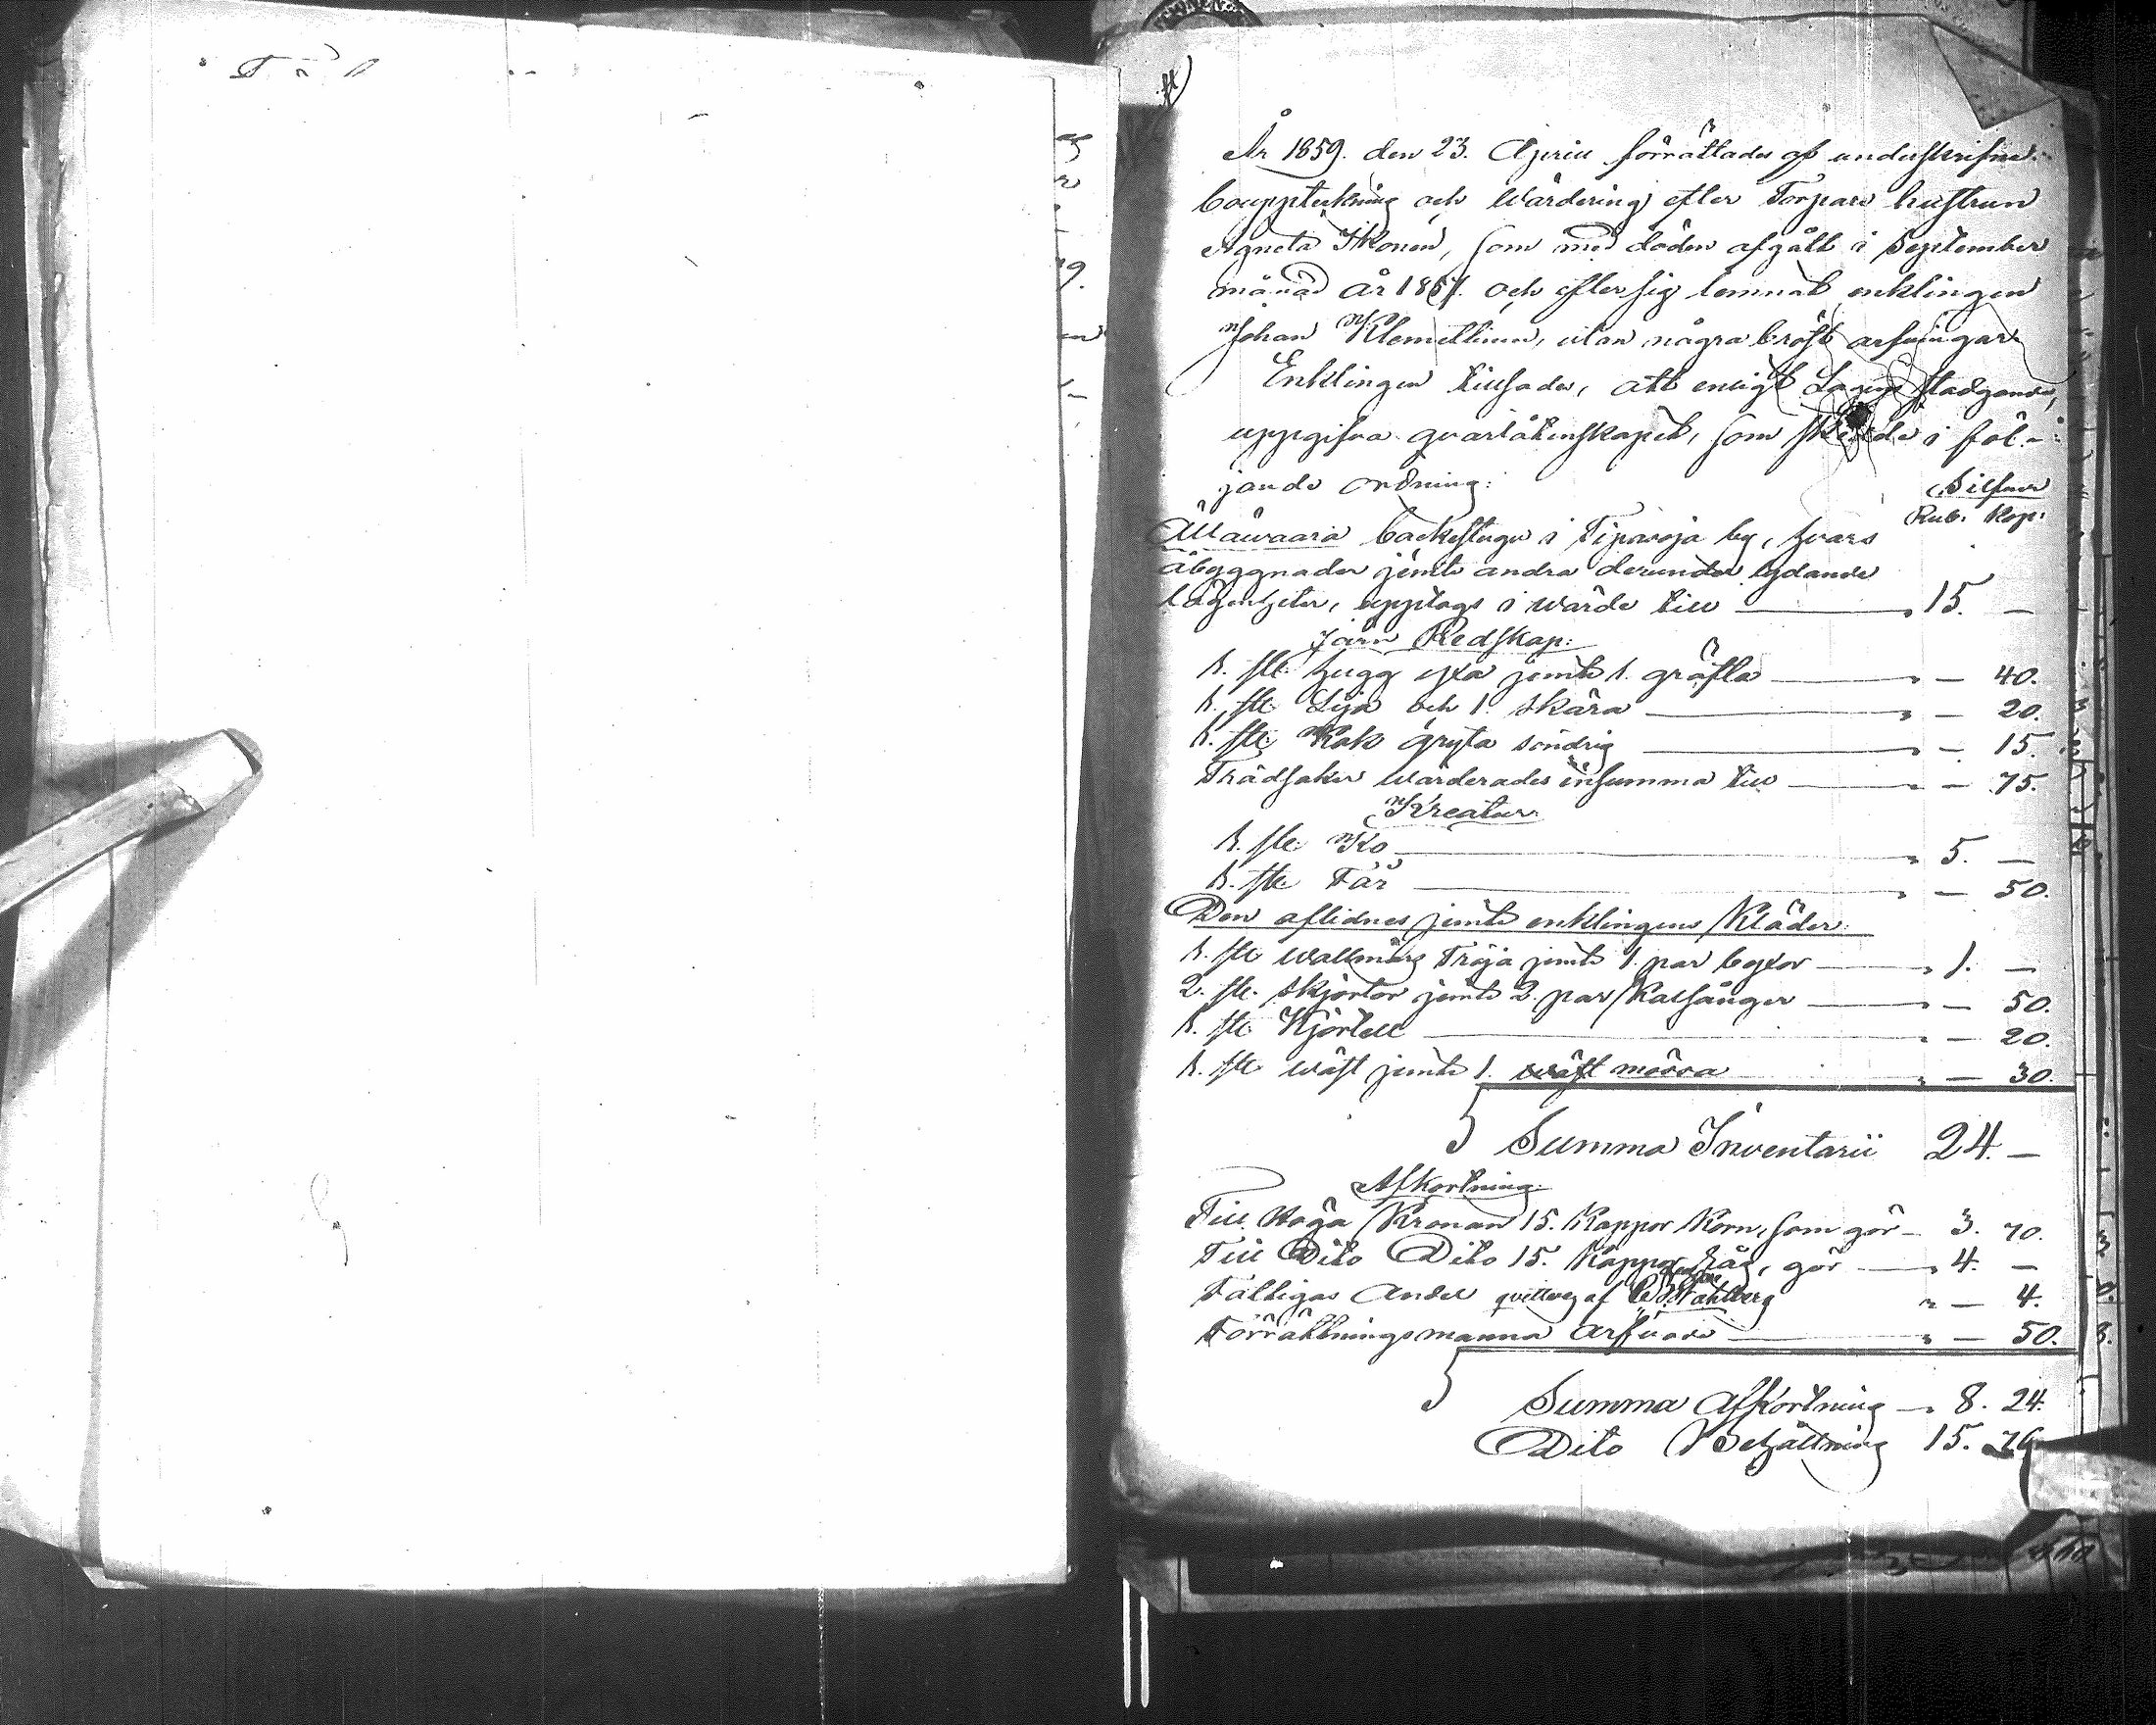 År 1859. den 23. April förrättades af underskrifne
bouppteckning och wärdering efter Torpare hustrun
Agneta Ikonen, som med döden afgått i September
månad år 1857. och efter sig lemnat enklingen
Johan Klemettinen, utan några bröst arfwingar.
Enklingen tillsades, att enligt Lagens stadgande,
uppgifva qvarlåtenskapet, som skedde i föl-
jande ordning:
Silfwer
Rub. Kop:
Ällåwaara backstuga i Tipasoja by, hvars
åbyggnader jemte andra derunder lydande
lägenheter, upptogs i wärde till 15. —
Järn Redskap:
1. st. hugg yxa jemte 1. gräfta — 40.
1. st. Lija och 1. skära — 20.
1. st. Kak gryta söndrig — 15.
Trädsaker wärderades insumma till — 75.
Kreatur
1. st. Ko 5. —
1. st. Får — 50.
Den aflidnes jemte enklingens Kläder:
1. st. wallmars Tröja jemte 1. par byxor 1. —
2. st. skjortor jemte 2. par Kalsånger — 50.
1. st. Kjortell — 20.
1. st. wäst jemte 1. wäst mössa — 30.
Summa Inventarii 24. —
Afkortning:
Till Höga Kronan 15. Kappor Korn, som gör 3. 70.
Till Dito Dito 15. Kappor råg, gör 4. —
Fattigas Andel qvitteras af Wahlberg — 4.
Förrättningsmanna arfvode — 50.
Summa Afkortning 8. 24.
Dito Behållning 15. 76